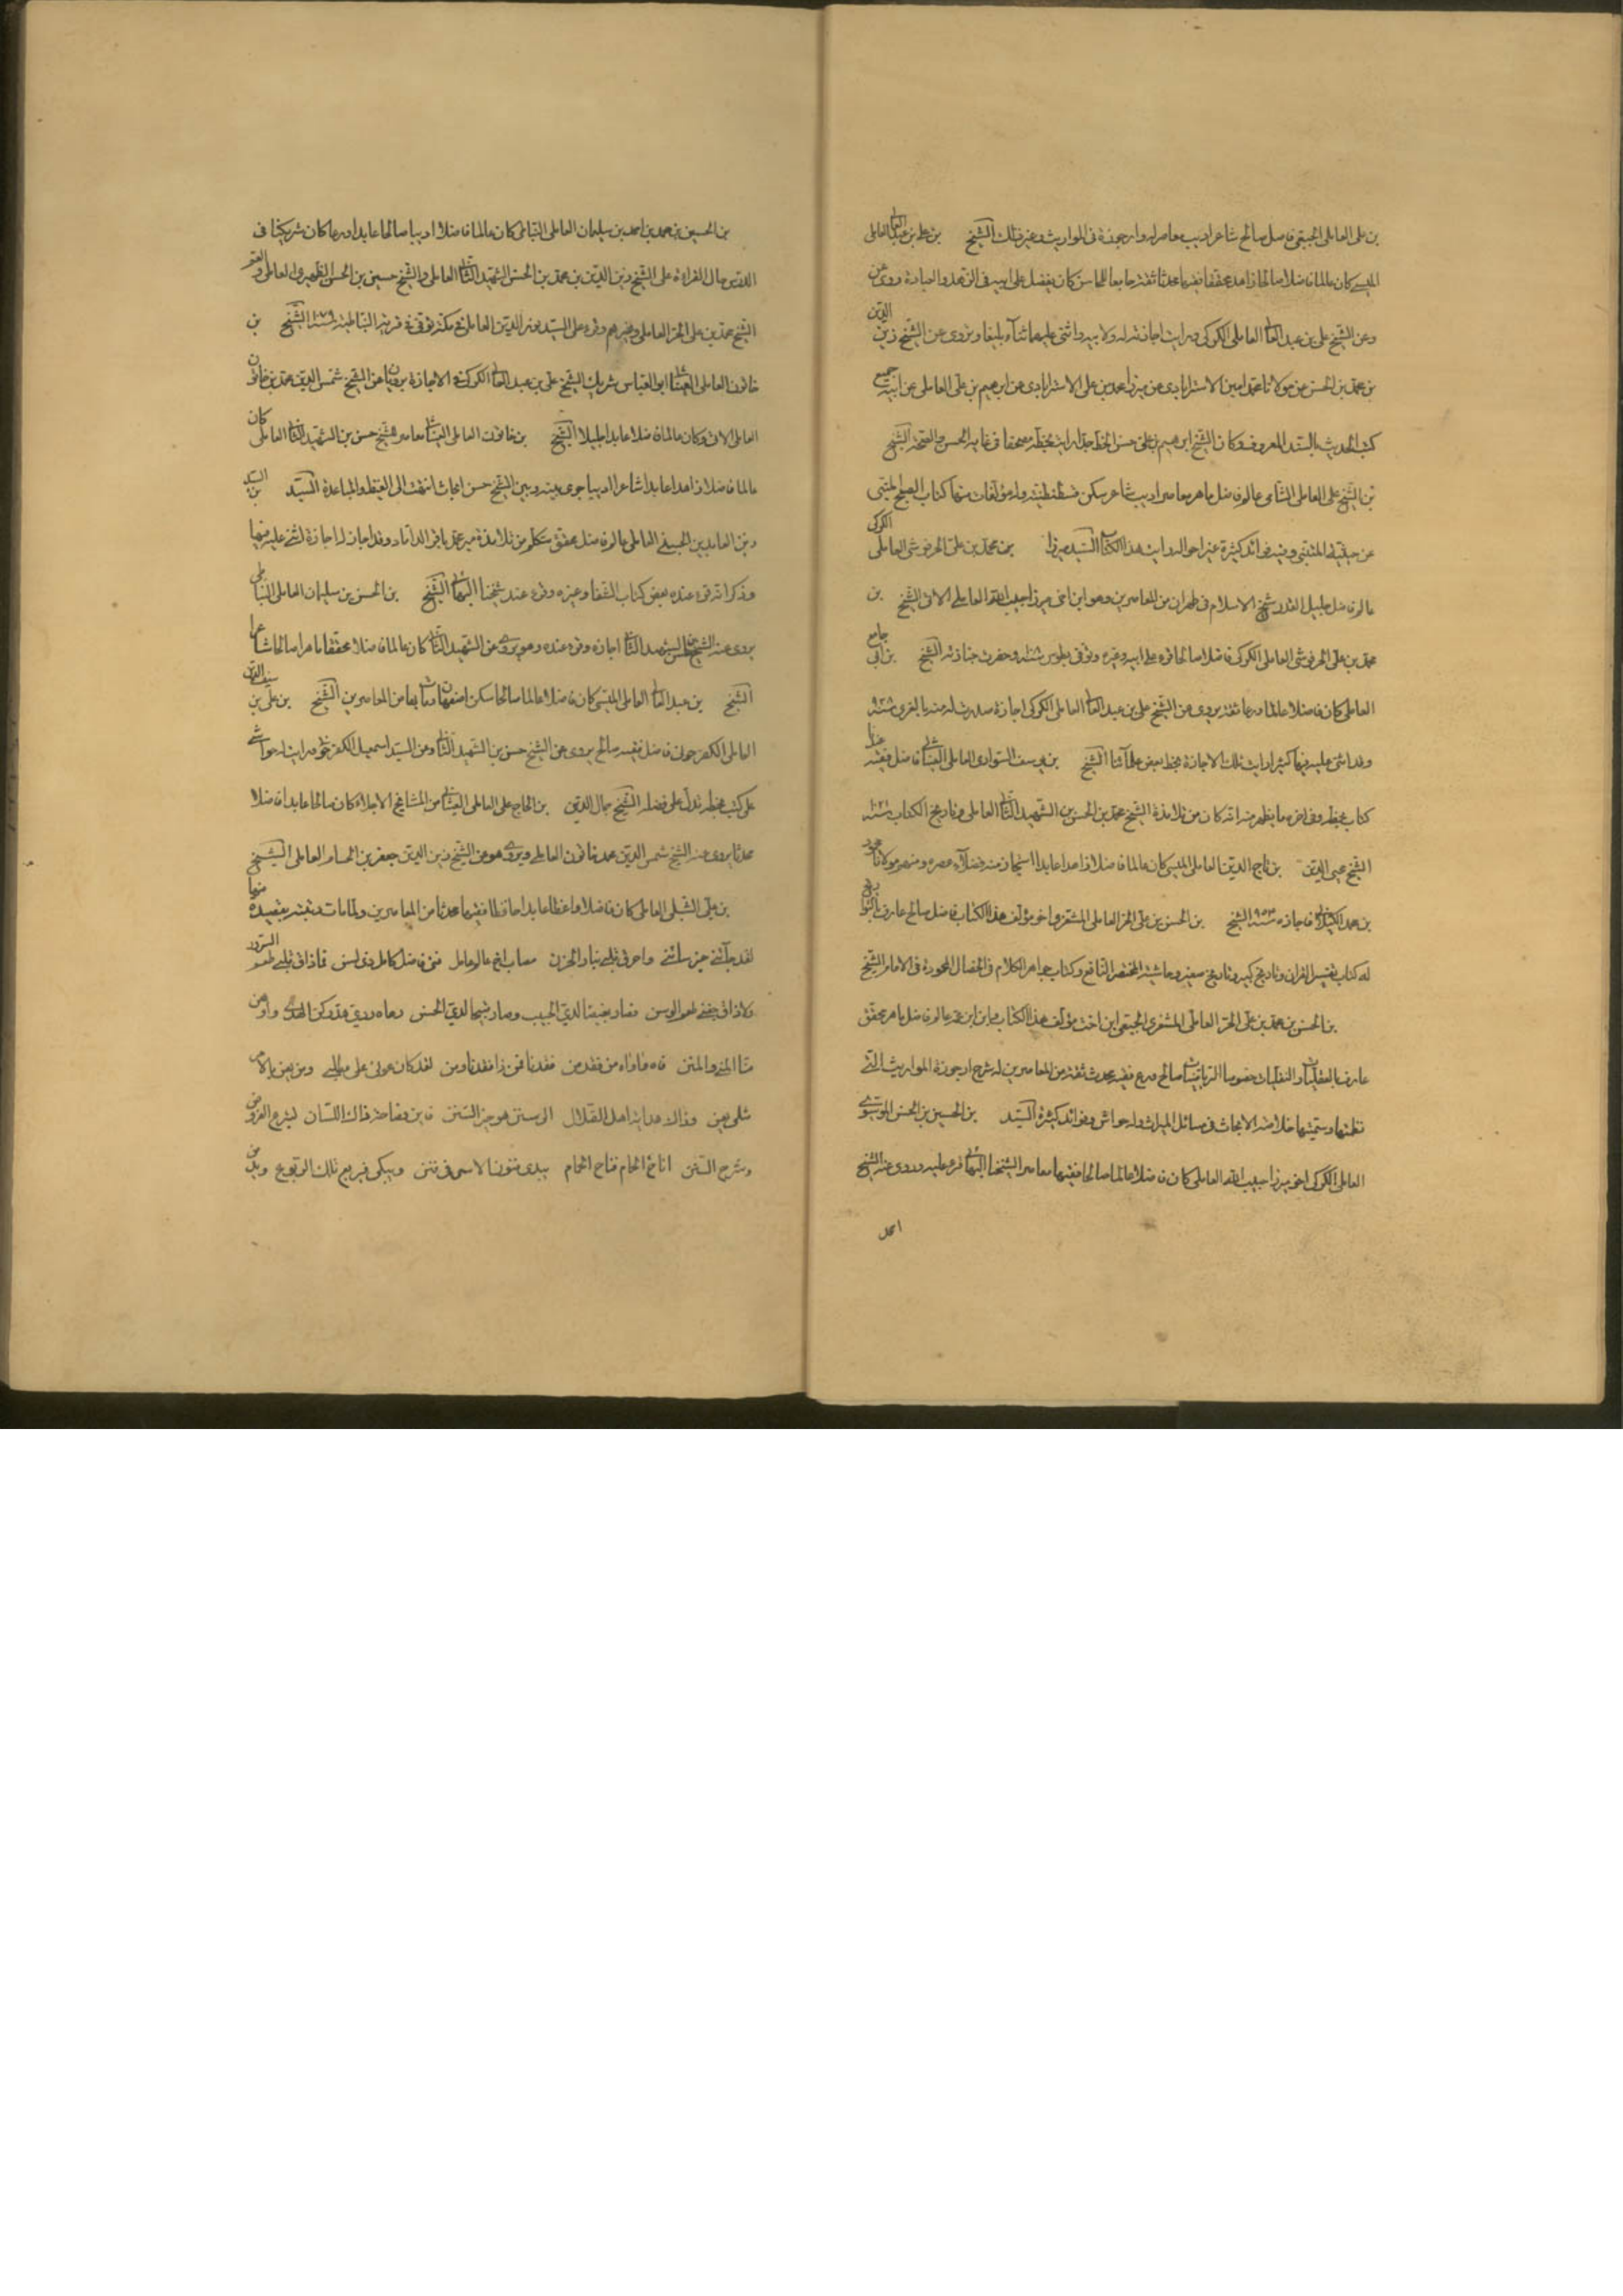 بن علی العاملی الجبعی فاضل صالح شاعر ادیب معاصر له ارجوزة فی المواریث وغیر ذلک الشیخ بن علی بن عبد العالی العاملی
المیسی کان عالما فاضلا صالحا زاهدا محققا فقیها محدثا ثقة جامعا للمحاسن کان یفضل علی ابیه فی الزهد والعبادة روی عن
وعن الشیخ علی بن عبد العالی العاملی الکرکی ورایت اجازته له ولابیه واثنی علیهما ثناء بلیغا ویروی عن الشیخ زین الدین
بن محمد بن الحسن عن مولانا محمد امین الاسترابادی عن میرزا محمد بن علی الاسترابادی عن ابرهیم بن علی العاملی عن ابیه جمیع
کتب الحدیث بالسند المعروف وکان الشیخ ابرهیم بن علی حسن الخط جدا رایت بخطه مصحفا فی غایة الحسن والصحة الشیخ
بن الشیخ علی العاملی الشامی عالم فاضل ماهر معاصر ادیب شاعر سکن قسطنطنیة وله مؤلفات منها کتاب الصبح المنبی
عن حیثیة المتنبی وفیه فوائد کثیرة غیر احوال رایت هذا الکتاب السید میرزا بن محمد بن علی الحرفوشی العاملی الکرکی
عالم فاضل جلیل القدر شیخ الاسلام فی طهران من المعاصرین وهو ابن اخی میرزا حبیب الله العاملی الاتی الشیخ بن
محمد بن علی الحرفوشی العاملی الکرکی فاضلا صالحا قرء علی ابیه وغیره وتوفی بطوس سنة وحضرت جنازته الشیخ بن ابی جامع
العاملی کان فاضلا عالما ورعا ثقة یروی عن الشیخ علی بن عبد العالی العاملی الکرکی اجازة صدرت له منه بالغری سنة ۹۲۸
وقد اثنی علیه فیها کثیرا رایت تلک الاجازة بخط بعض علمائنا الشیخ بن یوسف السوادی العاملی العیناثی فاضل فقیه
کتاب بخطه وفی اخره ما یظهر منه انه کان من تلامذة الشیخ محمد بن الحسن بن الشهید الثانی العاملی وتاریخ الکتاب سنة ۱۰۲۱
الشیخ محیی الدین بن تاج الدین العاملی المیسی کان عالما فاضلا زاهدا عابدا استجاز منه فضلاء عصره ومنهم مولانا محمود
بن محمد الکیلانی فاجازه سنة ۹۵۴ الشیخ بن الحسن بن علی الحر العاملی المشغری اخو مؤلف هذا الکتاب فاضل صالح عارف بالتواریخ
له کتاب تفسیر القران وتاریخ کبیر وتاریخ صغیر وحاشیة المختصر النافع وکتاب جواهر الکلام فی الخصال المحمودة فی الانام الشیخ
بن الحسن بن محمد بن علی الحر العاملی المشغری الجبعی ابن اخت مؤلف هذا الکتاب وابن ابن عمه عالم فاضل ماهر محقق
عارف بالعقلیات والنقلیات خصوصا الریاضیات صالح ورع فقیه محدث ثقة من المعاصرین له شرح ارجوزة المواریث التی
نظمتها وسمیتها خلاصة الابحاث فی مسائل المیراث وله حواش وفوائد کثیرة السید بن الحسین بن الحسن الموسوی
العاملی الکرکی اخو میرزا حبیب الله العاملی کان فاضلا عالما صالحا فقیها معاصرا لشیخنا البهائی قرء علیه وروی عنه الشیخ
احمد
بن الحسین بن محمد بن احمد بن سلیمان العاملی النباطی کان عالما فاضلا ادیبا صالحا عابدا ورعا کان شریکنا فی
الدرس حال القراءة علی الشیخ زین الدین بن محمد بن الحسن بن الشهید الثانی العاملی والشیخ حسین بن الحسن الظهیری العاملی والعم
الشیخ محمد بن علی الحر العاملی وغیرهم وقرء علی السید نور الدین العاملی فی مکة توفی فی قریة النباطیة سنة ۱۰۷۹ الشیخ بن
خاتون العاملی العیناثی ابو العباس شریک الشیخ علی بن عبد العالی الکرکی فی الاجازة یرویان عن الشیخ شمس الدین محمد بن خاتون
العاملی الاتی وکان عالما فاضلا عابدا جلیلا الشیخ بن خاتون العاملی العیناثی معاصر للشیخ حسن بن الشهید الثانی العاملی کان
عالما فاضلا زاهدا عابدا شاعرا ادیبا جری بینه وبین الشیخ حسن ابحاث انتهت الی الغیظ والمباعدة السید بن السید
زین العابدین الحسینی العاملی عالم فاضل محقق متکلم من تلامذة میر محمد باقر الداماد وقد اجازه اجازة اثنی علیه فیها
وذکر انه قرء عنده بعض کتاب الشفا وغیره وقرء عند شیخنا البهائی الشیخ بن الحسن بن سلیمان العاملی النباطی
یروی عنه الشیخ حسن بن الشهید الثانی اجازة وقرء عنده وهو یروی عن الشهید الثانی کان عالما فاضلا محققا ماهرا صالحا شاعرا
الشیخ بن عبد العالی العاملی المیسی کان فاضلا عالما صالحا سکن اصفهان ومات بها من المعاصرین الشیخ بن علی بن سیف الدین
العاملی الکفرحونی فاضل فقیه صالح یروی عن الشیخ حسن بن الشهید الثانی وعن السید اسمعیل الکفرحونی ورایت له حواشی
علی کتب بخطه تدل علی فضله الشیخ جمال الدین بن الحاج علی العاملی العیناثی من المشایخ الاجلاء کان صالحا عابدا فاضلا
محدثا یروی عنه الشیخ شمس الدین محمد خاتون العاملی ویروی هو عن الشیخ زین الدین جعفر بن الحسام العاملی الشیخ
بن علی الشبلی العاملی کان فاضلا واعظا عابدا حافظا فقیها محدثا من المعاصرین ولما مات رثیته بقصیدة منها
لقد جآئنی خبر سائنی واحرق قلبی بنار الحزن مصاب اخ عالم عامل فتی فاضل کامل ذی لسن فما ذاق قلبی طعم السرور
ولا ذاق جفنی طعم الوسن فصار بغیضا لدی الحبیب وصار قبیحا لدی الحسن رماه ردی هد رکن الهدی واوهن
منا المنی والمنن فاه فاواه من فقد من فقدنا فمن ذا فقدنا ومن لقد کان عونی علی مطلبی ومن یعن بالامر
مثلی یعن وذلک هدایة اهل الضلال الی سنن هو خیر السنن فاین فصاحة ذاک اللسان لشرح الفروض
وشرح السنن اناخ الحمام فناح الحمام یبدی فنون الاسی فی فنن ویبکی فریع تلک الربوع ویذل من